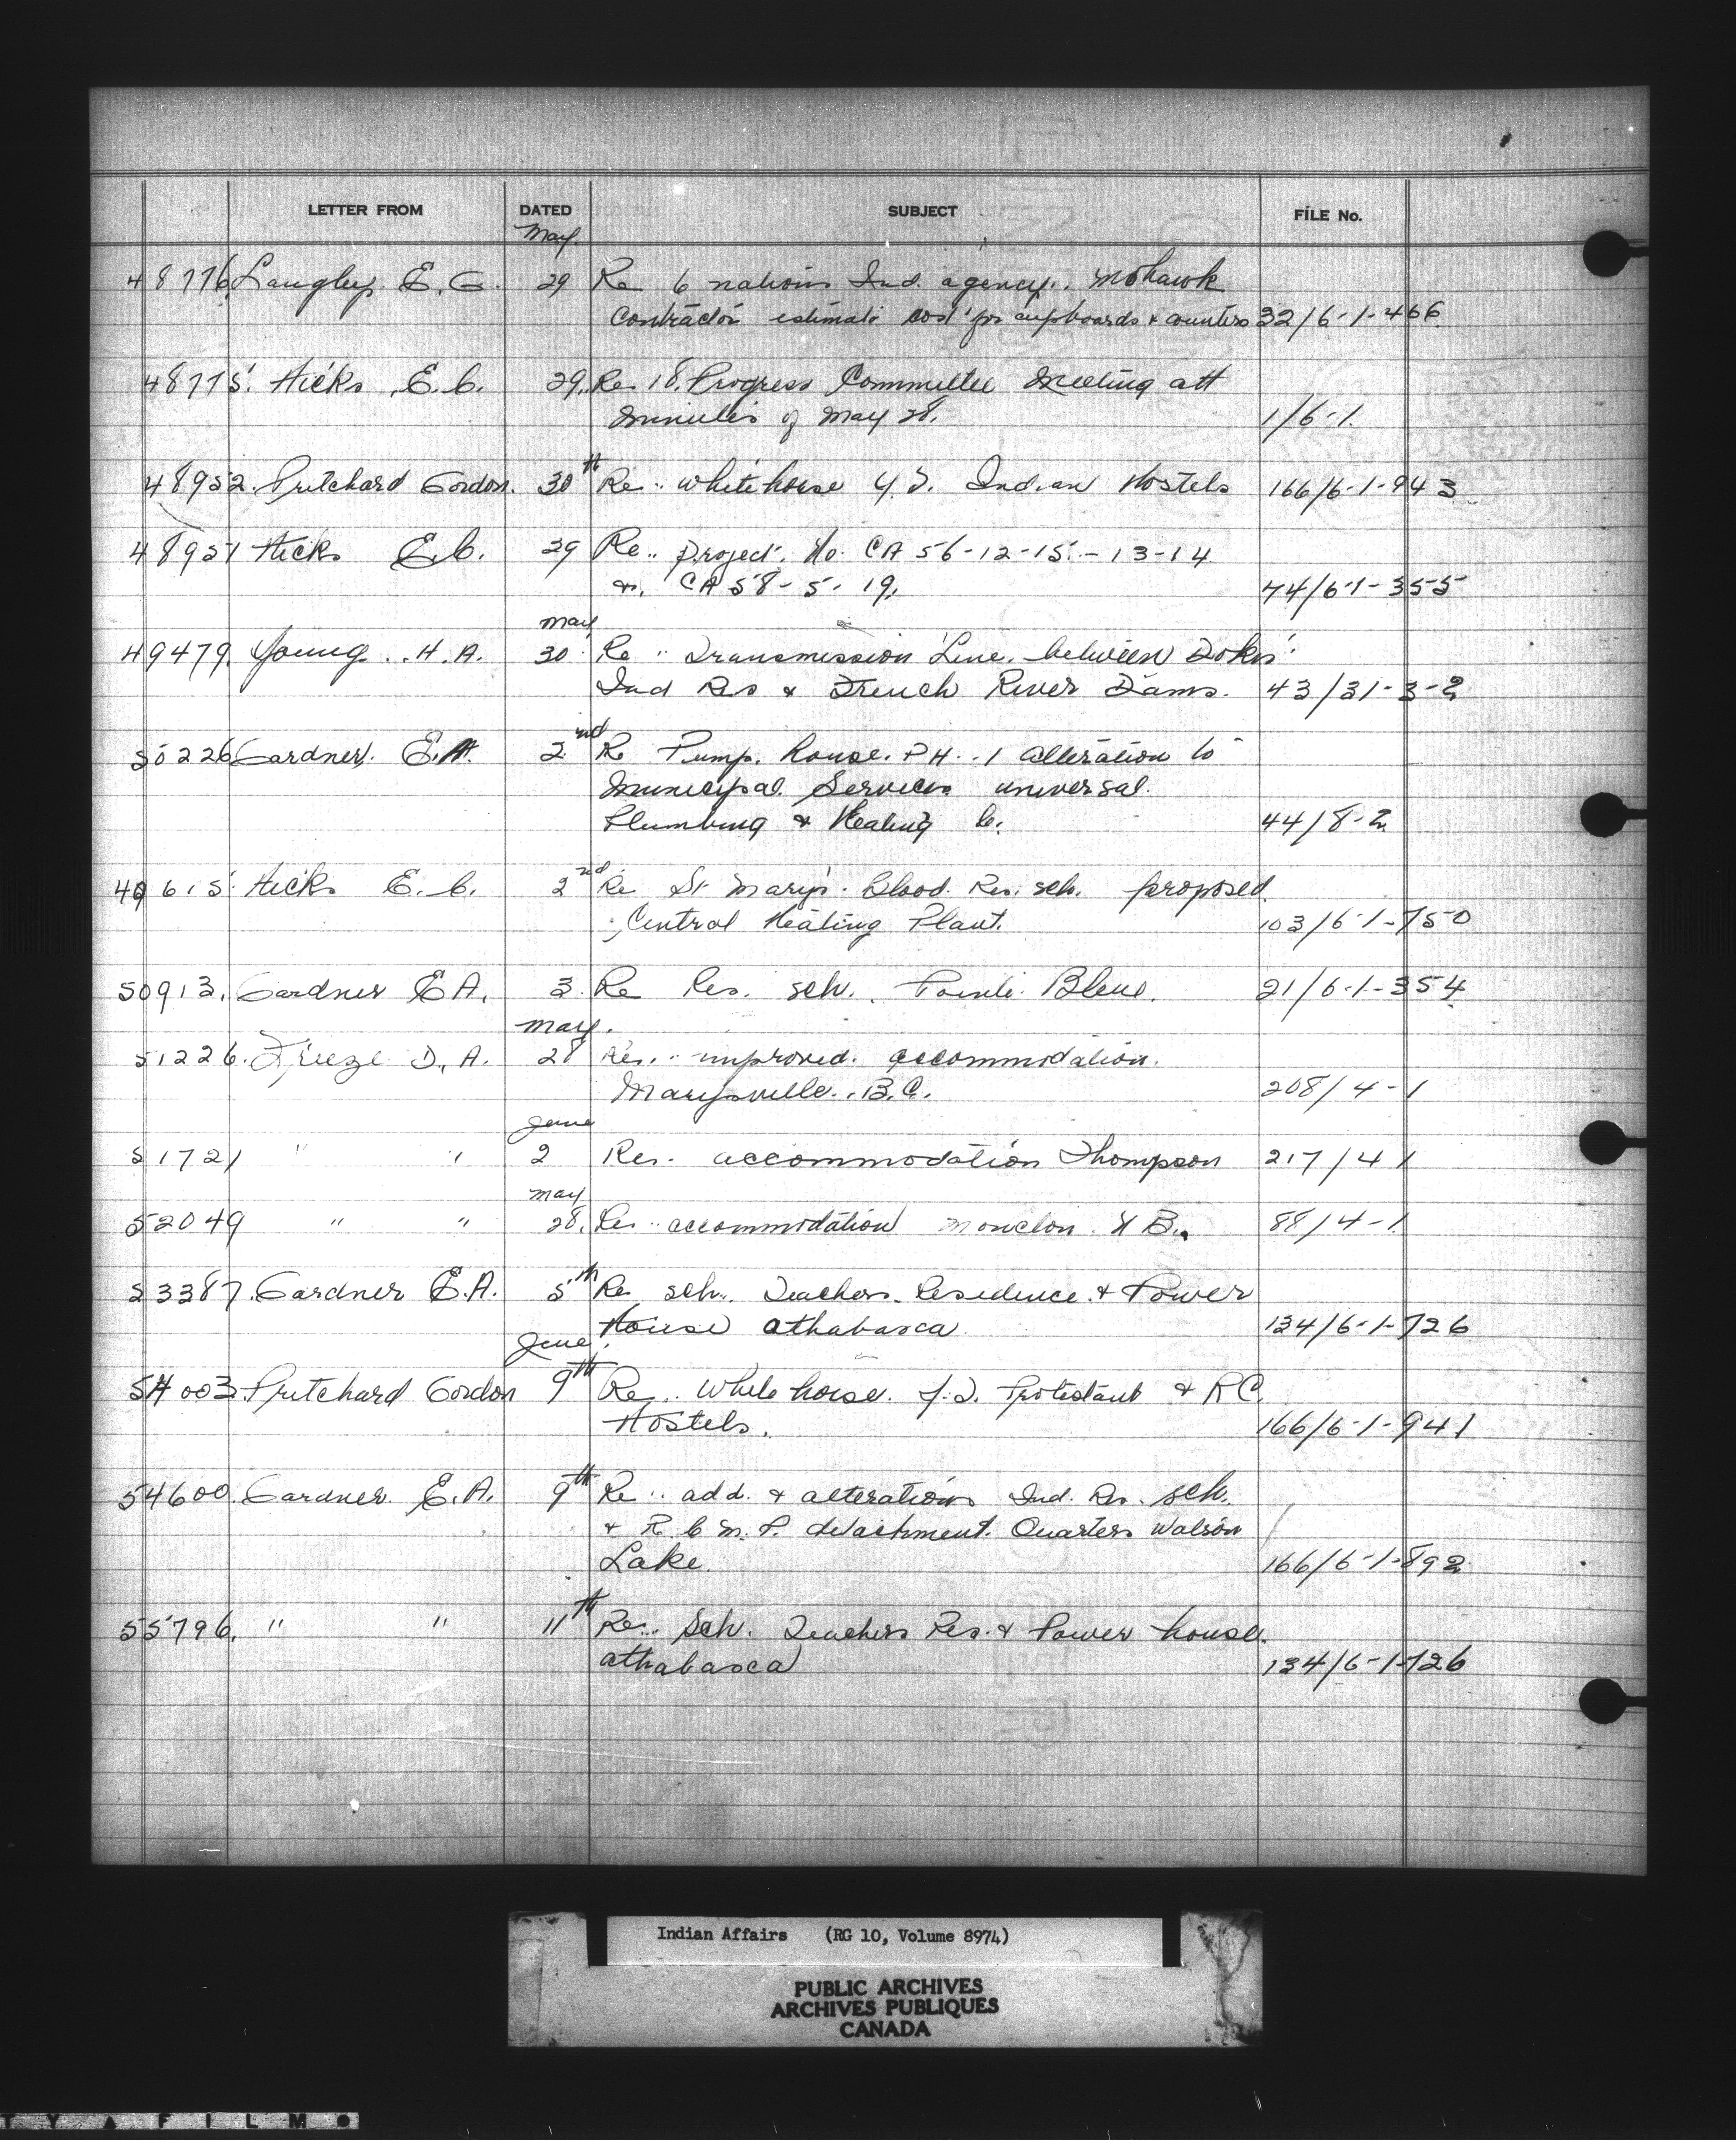 LETTER FROM DATED SUBJECT FILE No.
May
48776 Langley E. G. 29 Re 6 nations Ind. agency. Mohawk
Contractor estimate cost for cupboards & counters 32/6-1-466
48775 Hicks E. C. 29 Re 18. Progress Committee Meeting att
minutes of May 28. 1/6-1
48952 Pritchard Gordon. 30th Re.. Whitehorse Y.T. Indian Hostels 166/6-1-943
48951 Hicks E.C. 29 Re.. Project. No. CA 56-12-15-13-14
&. CA 58-5-19. 74/6-1-355
May
49479 Young H.A. 30 Re.. Transmission Line. between Dokis
Ind Res & French River Dams. 43/31-3-2
50226 Gardner. E.A. 2nd Re Pump. house. PH. 1 alteration to
Municipal Services universal.
Plumbing & Heating Co. 44/8-2
49615 Hicks E. C. 2nd Re St Mary's. Blood. Res. sch. proposed.
Central Heating Plant. 103/6-1-750
50913. Gardner E A. 3. Re Res. sch. Pointe Bleue. 21/6-1-354
May.
51226. Freeze D. A. 28 Re.. improved. accommodation.
Marysville.. B.C. 208/4-1
June
51721 " " 2 Re.. accommodation Thompson 217/4-1
May
52049 " " 28. Re.. accommodation Moncton. N B. 88/4-1
53387. Gardner E.A. 5th Re sch.. Teachers. Residence. & Power
House athabasca 134/6-1-726
June.
54003 Pritchard Gordon 9th Re.. Whitehorse. Y.T. Protestant & RC.
Hostels. 166/6-1-941
54600. Gardner. E.A. 9th Re.. add. & alterations Ind. Res. sch.
& R C M. P. detachment. Quarters Watson
Lake. 166/6-1-892
55796. " " 11th Re.. Sch. Teachers Res. & Power house.
athabasca 134/6-1-726
Indian Affairs (RG 10, Volume 8974)
PUBLIC ARCHIVES
ARCHIVES PUBLIQUES
CANADA
T Y ▲ F I L M ●